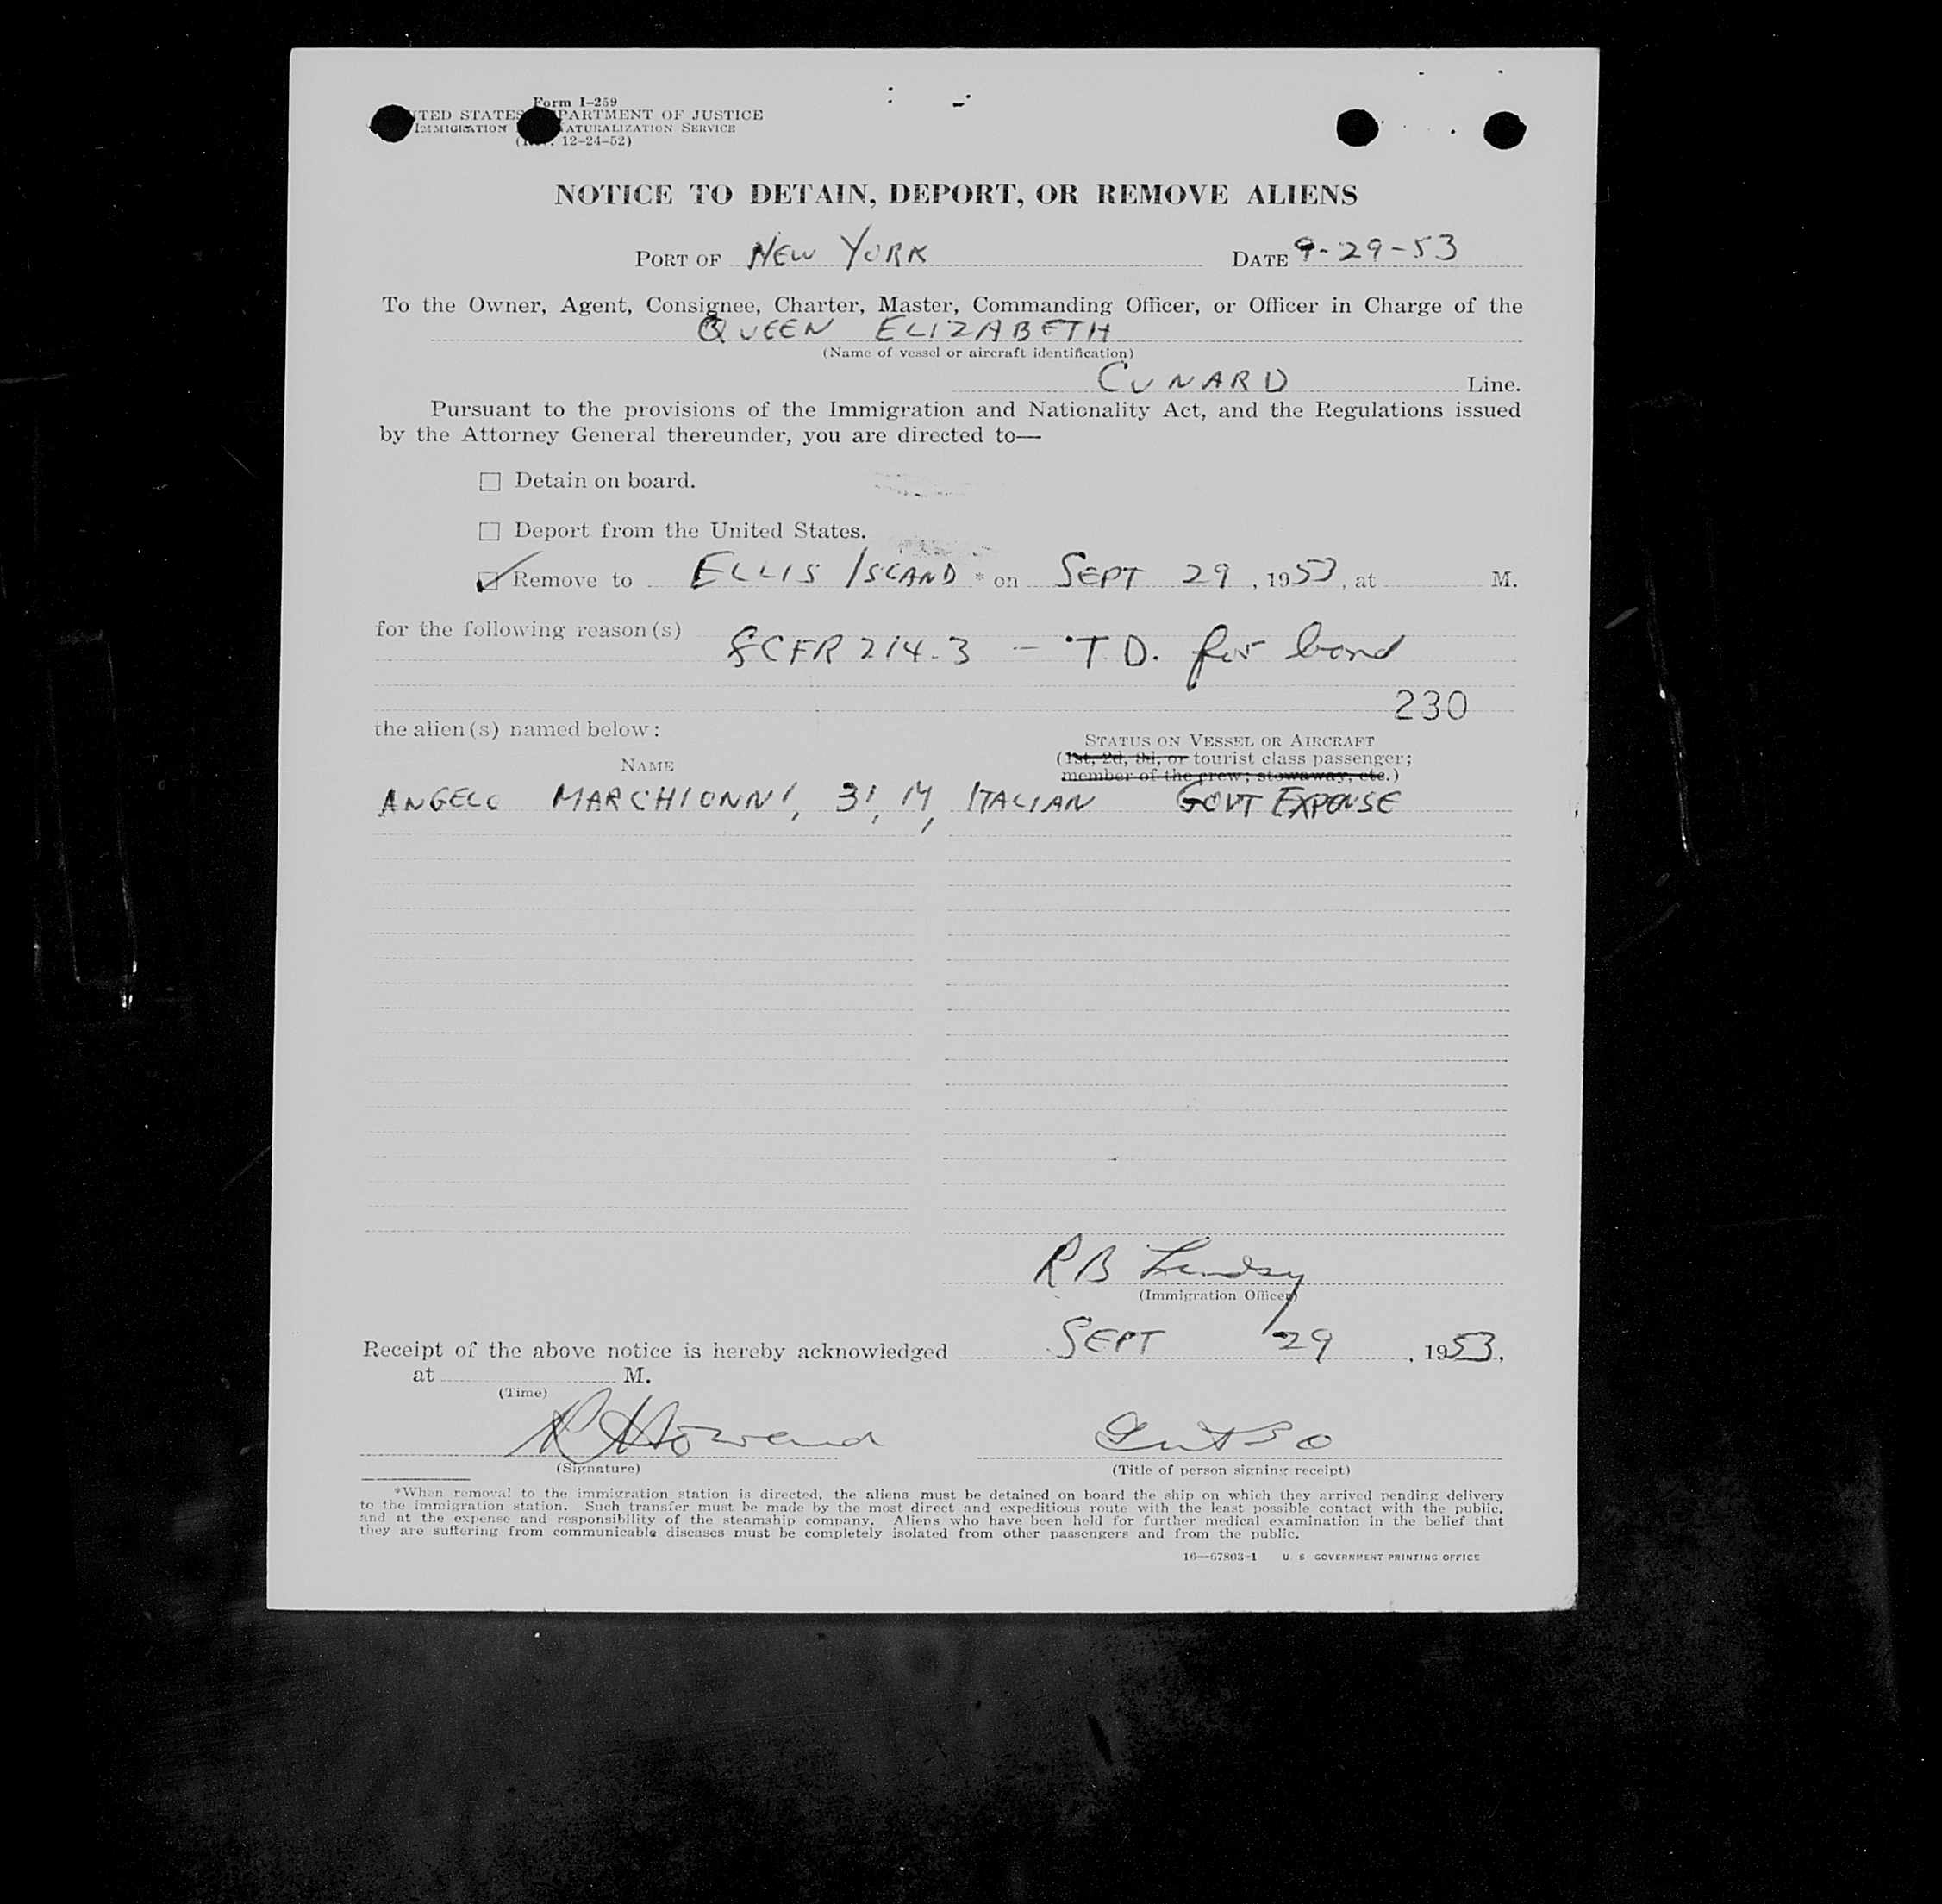 Form I-259
UNITED STATES DEPARTMENT OF JUSTICE
IMMIGRATION NATURALIZATION SERVICE
(Rev. 12-24-52)
NOTICE TO DETAIN, DEPORT, OR REMOVE ALIENS
PORT OF NEW YORK DATE 9-29-53
To the Owner, Agent, Consignee, Charter, Master, Commanding Officer, or Officer in Charge of the
QUEEN ELIZABETH
(Name of vessel or aircraft identification)
CUNARD Line.
Pursuant to the provisions of the Immigration and Nationality Act, and the Regulations issued
by the Attorney General thereunder, you are directed to—
☐ Detain on board.
☐ Deport from the United States.
☑ Remove to ELLIS ISLAND * on SEPT 29, 1953, at M.
for the following reason(s)
8CFR 214.3 - T.D. for bond
230
the alien(s) named below:
STATUS ON VESSEL OR AIRCRAFT
(1st, 2d, 3d, or tourist class passenger;
NAME
member of the crew; stowaway, etc.)
ANGELO MARCHIONNI, 31, M, ITALIAN GOVT EXPENSE
R B Lindsy
(Immigration Officer)
Receipt of the above notice is hereby acknowledged SEPT 29, 1953,
at M.
(Time)
R Howard
(Signature) (Title of person signing receipt)
*When removal to the immigration station is directed, the aliens must be detained on board the ship on which they arrived pending delivery
to the immigration station. Such transfer must be made by the most direct and expeditious route with the least possible contact with the public,
and at the expense and responsibility of the steamship company. Aliens who have been held for further medical examination in the belief that
they are suffering from communicable diseases must be completely isolated from other passengers and from the public.
16—67803-1 U S GOVERNMENT PRINTING OFFICE